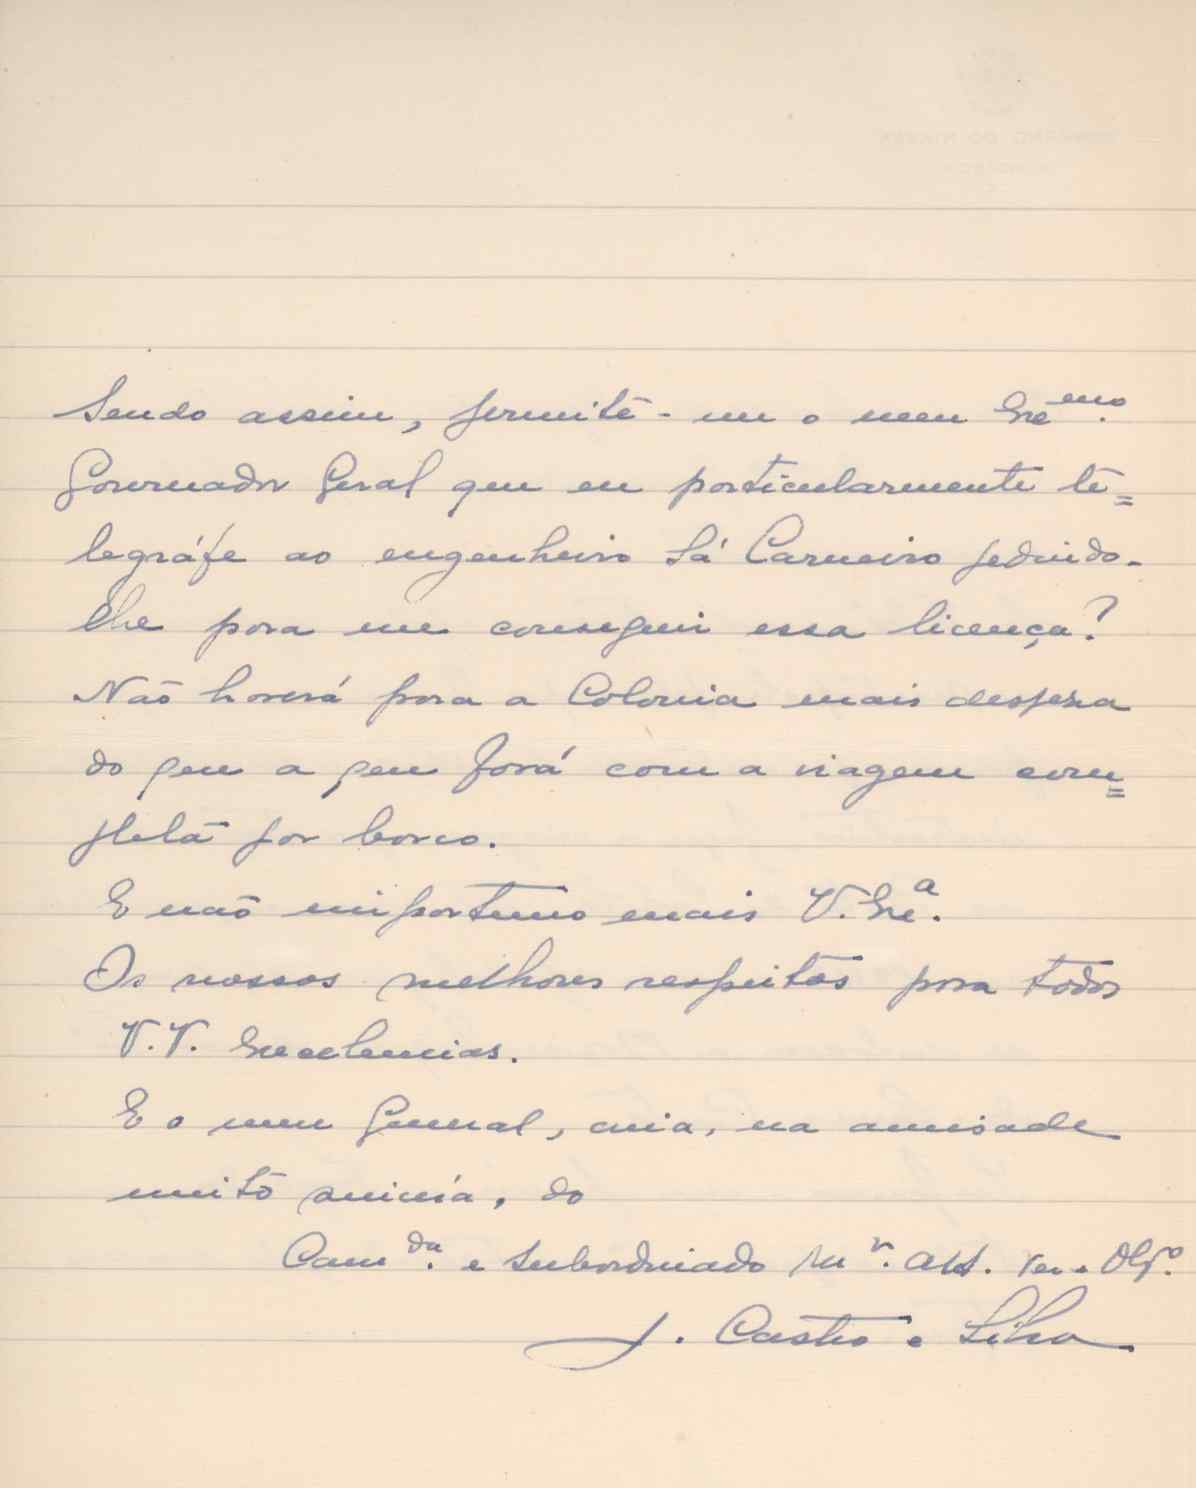 Sendo assim, permite-me o meu Exe^mo.
Governador Geral que eu particularmente te=
legráfe ao engenheiro Sá Carneiro pedindo-
lhe para me conseguir essa licença?
Não haverá para a Colonia mais despesa
do que a que fará com a viagem com=
pleta por barco.
E não importuno mais V. Exe^a.
Os nossos melhores respeitos para todos
V.V. Excelencias.
E o meu General, creia, na amisade
muito sincera, do
Cam^da. e subordinado M^r. Att. Ven. Obg^o.
J. Castro e Silva